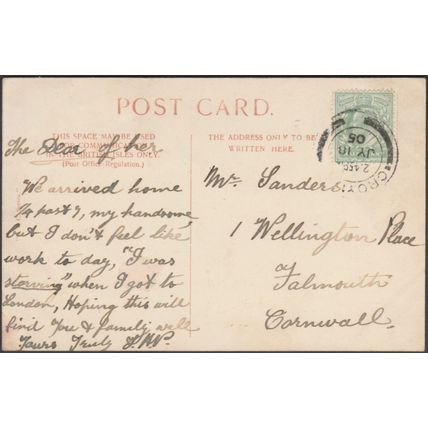 POST CARD.
THIS SPACE MAY BE USED
FOR COMMUNICATION
IN THE BRITISH ISLES ONLY.
(Post Office Regulation.)
The Dear
We arrived home
1/4 past 7, my handsome
but I don't feel like
work to day, "I was
starving" when I got to
London, Hoping this will
find You & family well
Yours Truly
THE ADDRESS ONLY TO BE
WRITTEN HERE.
Mr Sanders
1 Wellington Place
Falmouth
Cornwall.
CROYDON
JY 18
05